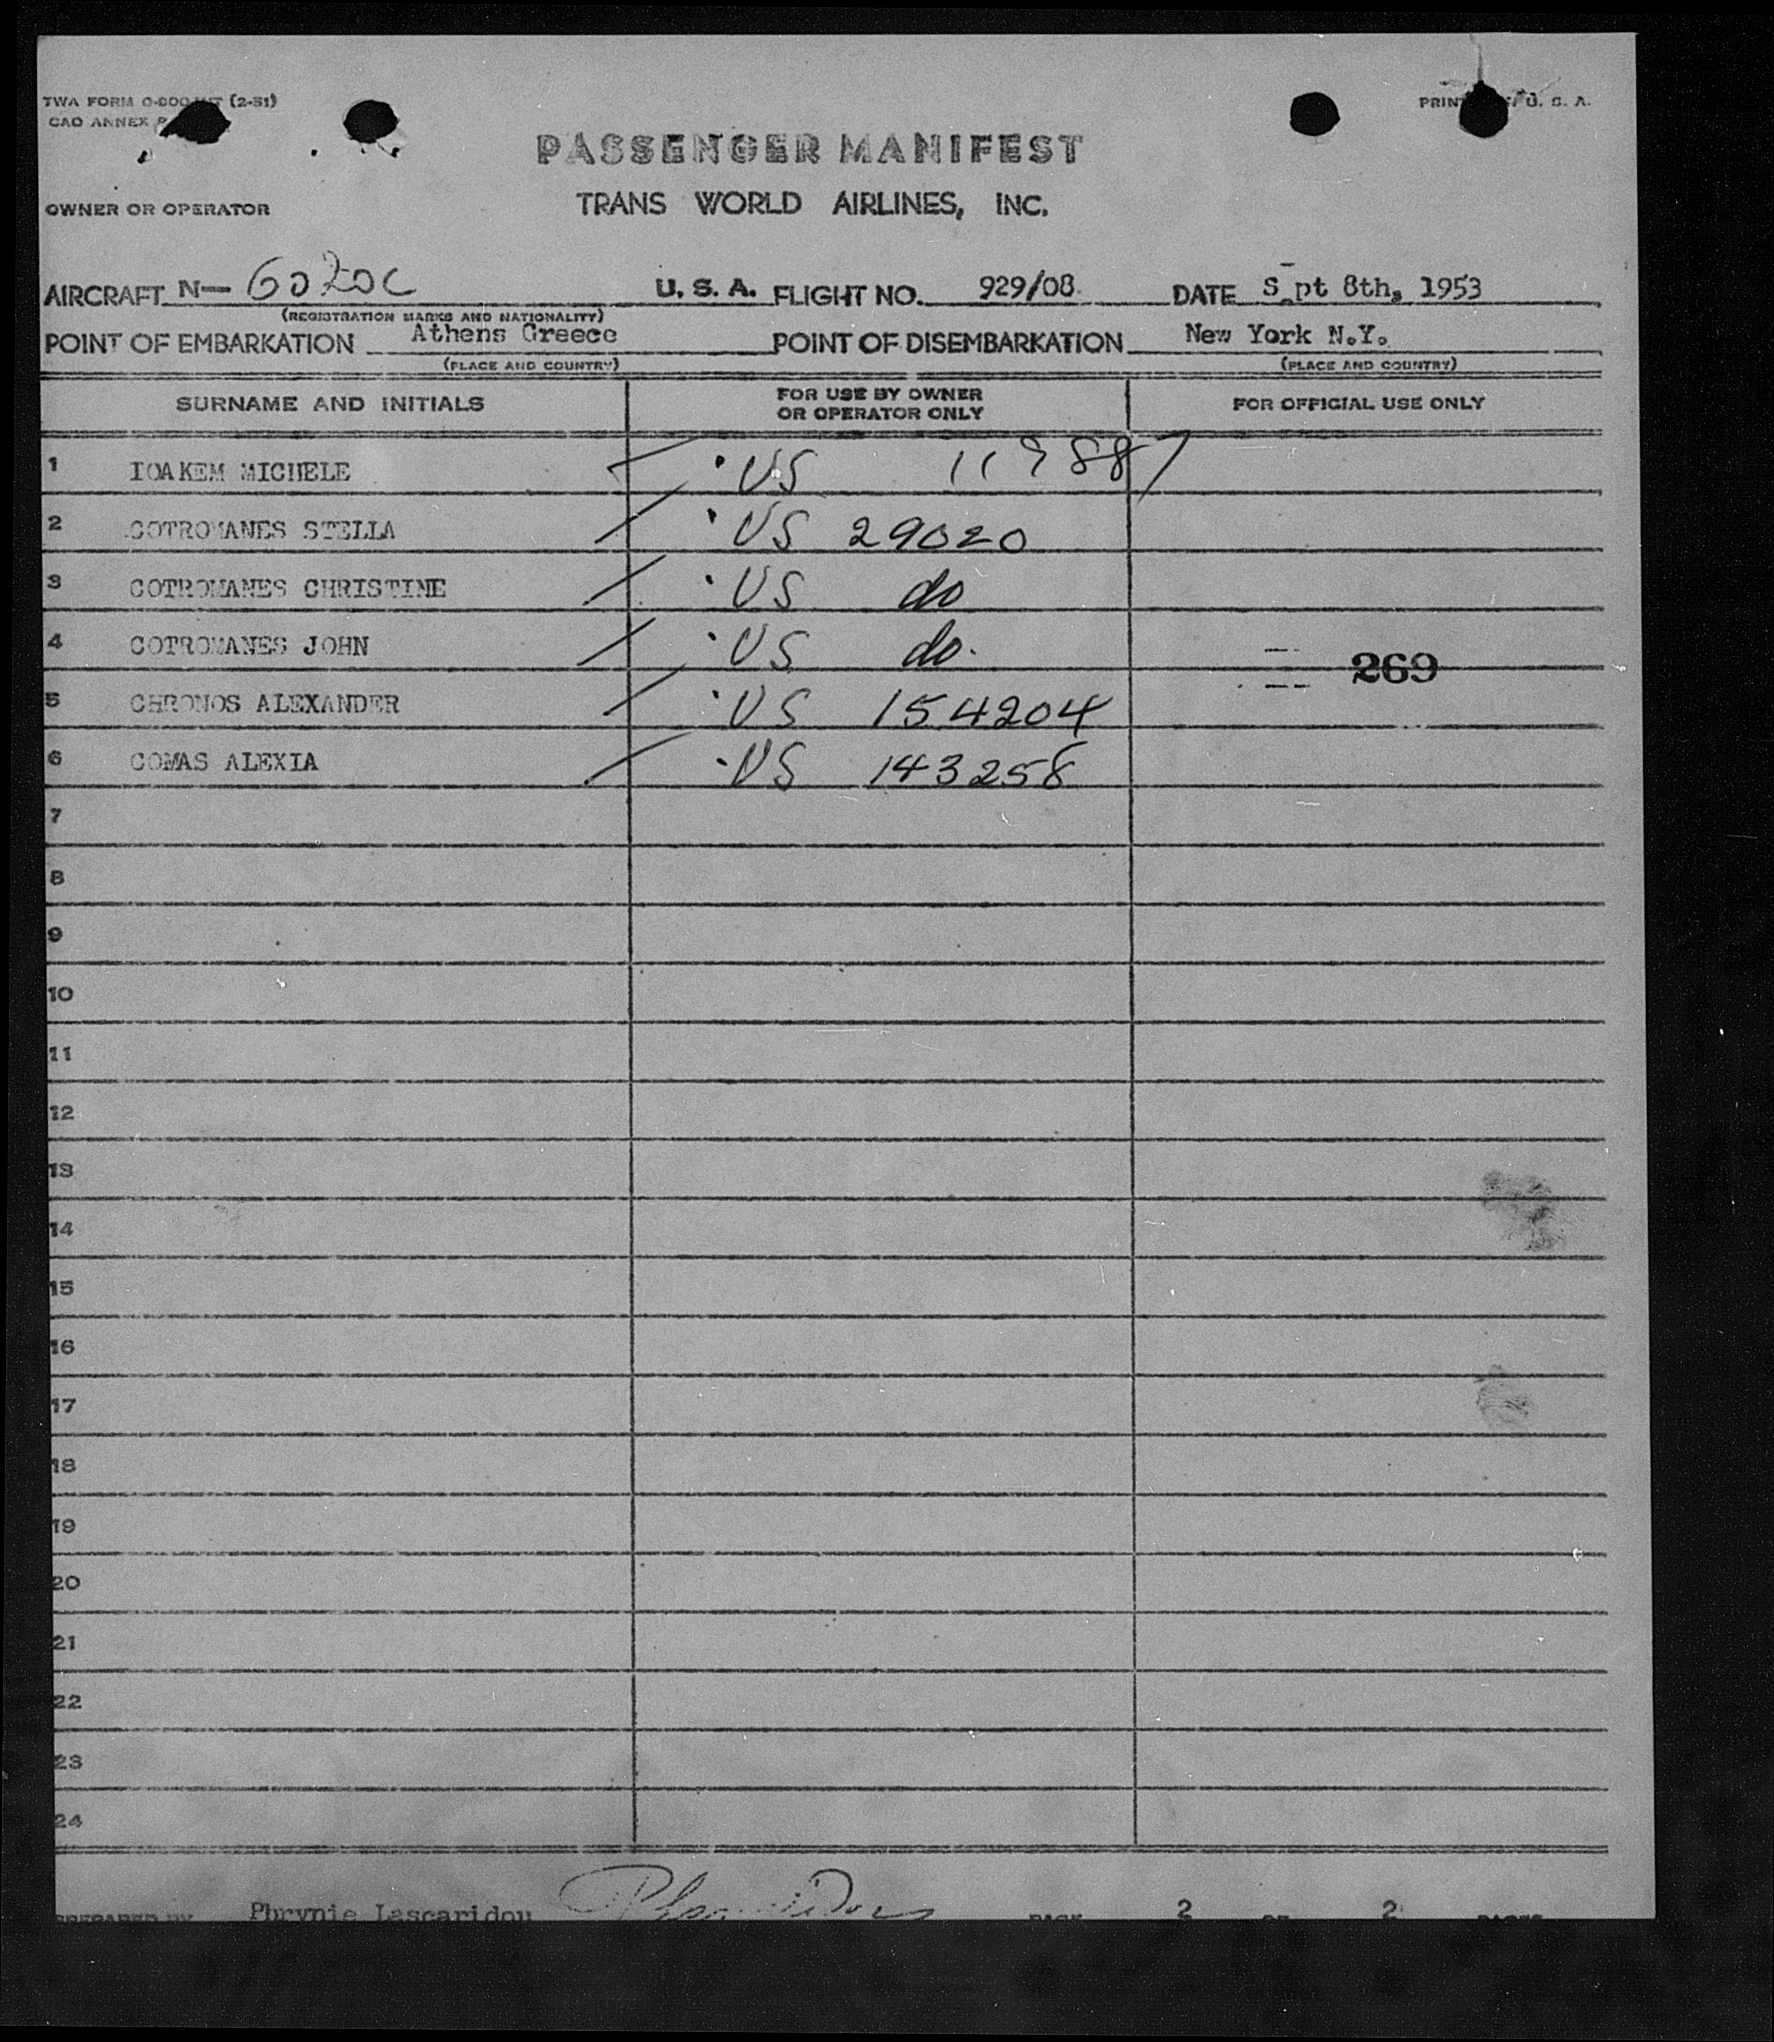 TWA FORM (2-51)
PRINTED IN U. S. A.
CAO ANNEX
PASSENGER MANIFEST
OWNER OR OPERATOR TRANS WORLD AIRLINES, INC.
AIRCRAFT N- 6020C U. S. A. FLIGHT NO. 929/08 DATE S pt 8th, 1953
(REGISTRATION MARKS AND NATIONALITY)
POINT OF EMBARKATION Athens Greece POINT OF DISEMBARKATION New York N.Y.
(PLACE AND COUNTRY) (PLACE AND COUNTRY)
SURNAME AND INITIALS FOR USE BY OWNER OR OPERATOR ONLY FOR OFFICIAL USE ONLY
1 IOAKEM MICHELE US
2 COTROMANES STELLA US 29020
3 COTROMANES CHRISTINE US do
4 COTROMANES JOHN US do.
269
5 CHRONOS ALEXANDER US 154204
6 COMAS ALEXIA US 143258
7
8
9
10
11
12
13
14
15
16
17
18
19
20
21
22
23
24
PREPARED BY Phrynie Lascaridou PAGE 2 OF 2 PAGES